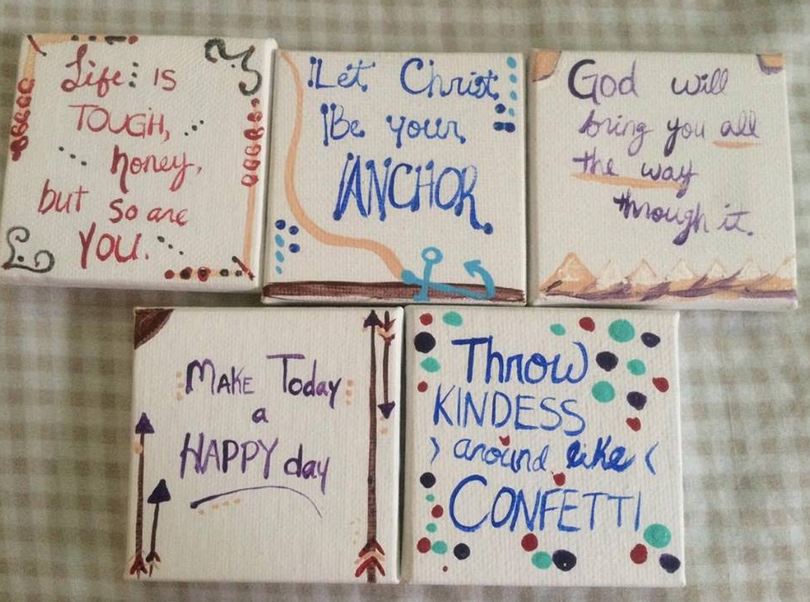 Life IS
TOUGH,
... honey,
but so are
YOU.
Let Christ
Be your
ANCHOR.
God will
bring you all
the way
through it.
MAKE Today
a
HAPPY day
Throw
KINDESS
> around like <
CONFETTI